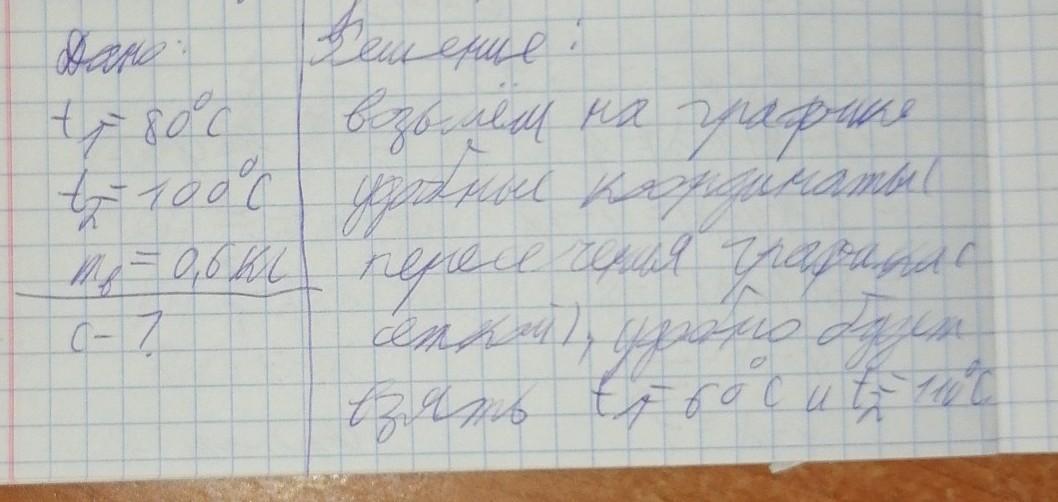 Дано:
t₁ = 80°C
t₂ = 100°C
mв = 0,6 кг
c - ?
Решение:
возьмём на графике
удобные координаты (
пересечения графика с
сеткой), удобно будет
взять t₁ = 60°C и t₂ = 110°C